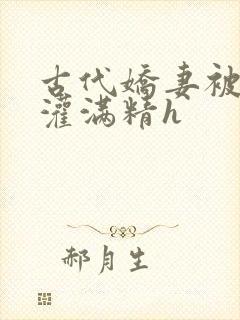 古代娇妻被
灌满精h
郝月生